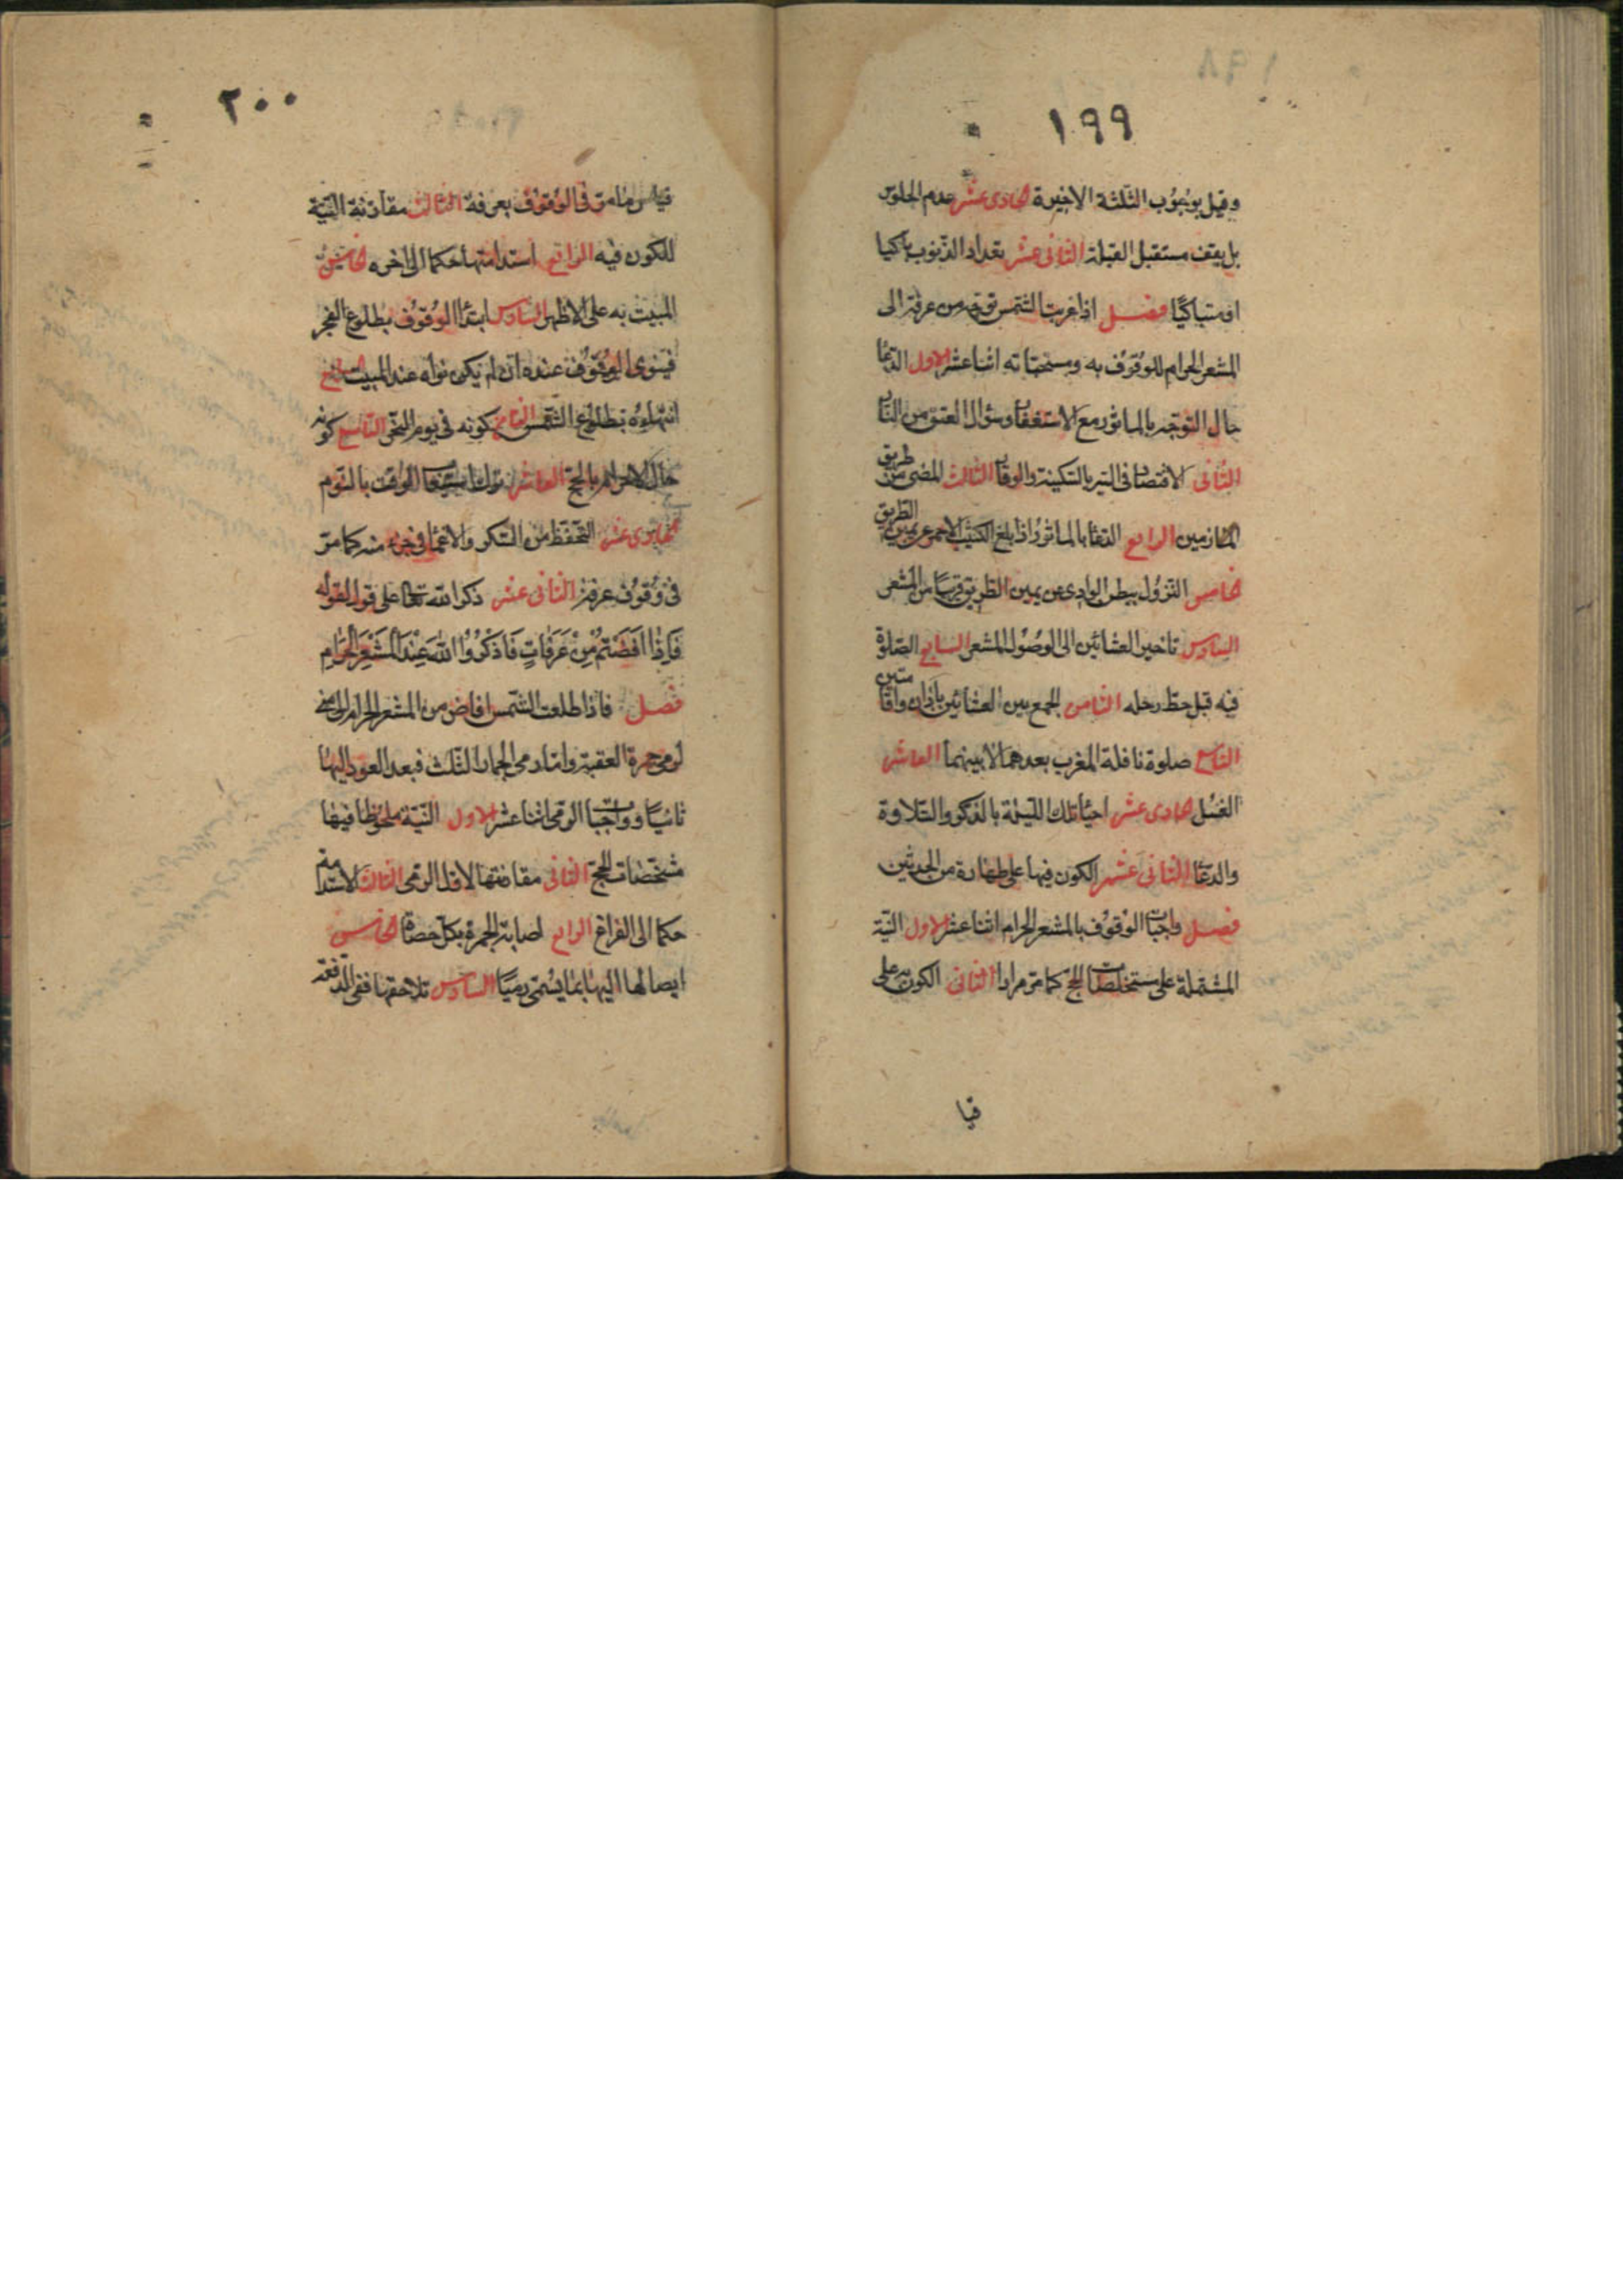 ١٩٩
وقيل بوجوب الثلثة الاخيرة الحادى عشر عدم الجلوس
بل يقف مستقبل القبلة الثانى عشر تعداد الذنوب باكيا
او متباكيا فصل اذا غربت الشمس توجه من عرفة الى
المشعر الحرام للوقوف به ومستحباته اثنا عشر الاول الدعا
حال التوجه بالماثور مع الاستغفار وسؤال العتق من النار
الثانى الاقتصاد فى السير بالسكينة والوقار الثالث المضى من طريق
المازمين الرابع الدعا بالماثور اذا بلغ الكثيب الاحمر عن يمين الطريق
الخامس النزول ببطن الوادى عن يمين الطريق قريبا من المشعر
السادس تاخير العشائين الى الوصول المشعر السابع الصلوة
فيه قبل حط رحله الثامن الجمع بين العشائين باذان واقامتين
التاسع صلوة نافلة المغرب بعدهما لا بينهما العاشر
الغسل الحادى عشر احيا تلك الليلة بالذكر والتلاوة
والدعا الثانى عشر الكون فيها على طهارة من الحدثين
فصل واجبات الوقوف بالمشعر الحرام اثنا عشر الاول النية
المشتملة على مستخلصات الحج كما مر مرارا الثانى الكون به على
قيا
٢٠٠
قياس ما مر فى الوقوف بعرفة الثالث مقارنة النية
للكون فيه الرابع استدامتها حكما الى اخره الخامس
المبيت به على الاظهر السادس ابتدا الوقوف بطلوع الفجر
فينوى الوقوف عنده ان لم يكن نواه عند المبيت السابع
انتهاءه بطلوع الشمس الثامن كونه فى يوم النحر التاسع كونه
حال الاحرام بالحج العاشر ترك استيعاب الوقت بالنوم
الحادى عشر التحفظ من السكر والاغما فى جزء منه كما مر
فى وقوف عرفة الثانى عشر ذكر الله تعالى على قول لقوله
فَاِذَا اَفَضْتُمْ مِنْ عَرَفَاتٍ فَاذْكُرُوا اللهَ عِنْدَ الْمَشْعَرِ الْحَرَامِ
فصل فاذا طلعت الشمس افاض من المشعر الحرام الى منى
لرمى جمرة العقبة واما رمى الجمار الثلث فبعد العود اليها
ثانيا وواجبات الرمى اثنا عشر الاول النية ملحوظا فيها
مشخصات الحج الثانى مقارنتها لاول الرمى الثالث الاستدامة
حكما الى الفراغ الرابع اصابة الجمرة بكل حصاة الخامس
ايصالها اليها بما يسمى رميا السادس تلاحقها ففى الدفعة